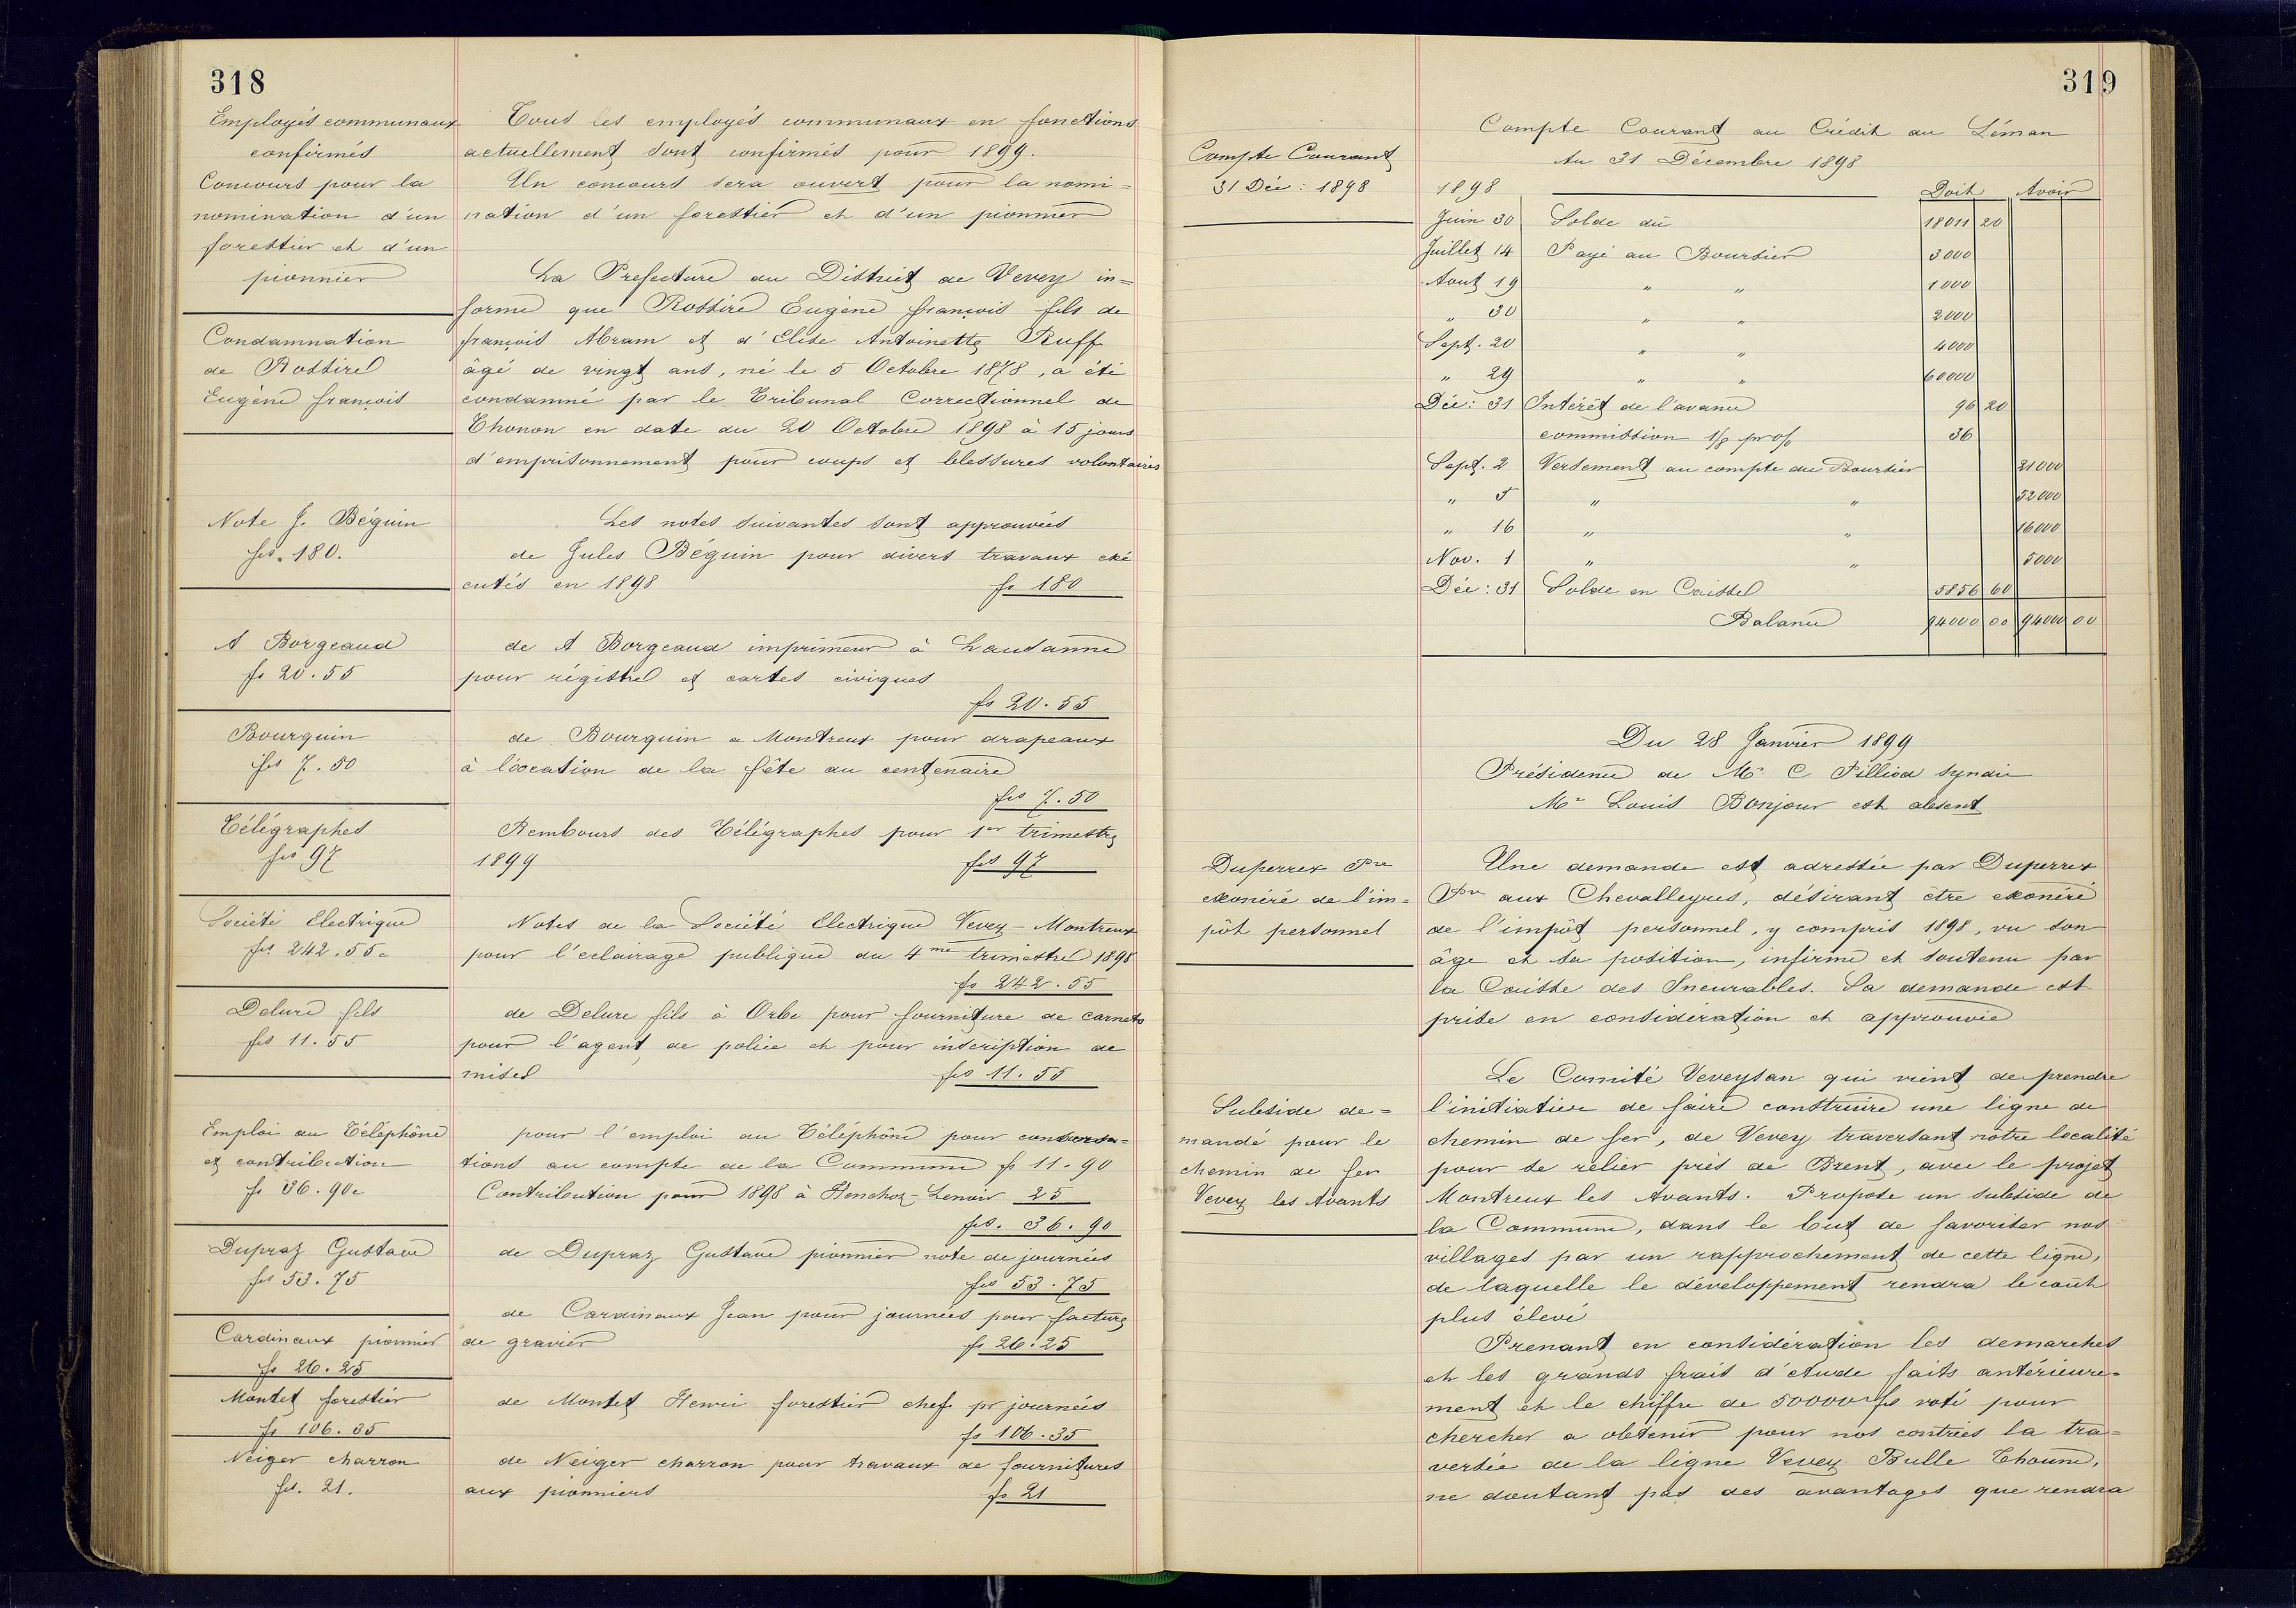 318
Employés communaux
confirmés
Concours pour la
nomination d'un
forestier et d'un
pionnier
Condamnation
de Rossire
Eugène françois
Note J. Béguin
frs. 180.
A Borgeaud
fs 20.55
Bourquin
frs 7.50
Télégraphes
frs 97
Société Electrique
frs 242.55
Delure fils
frs 11.55
Emploi du Téléphone
et contribution
fs 36.90
Dupraz Gustave
frs 53.75
Cardinaux pionnier
fs 26.25
Montet forestier
fs 106.35
Neiger charron
frs. 21.
Tous les employés communaux en fonctions
actuellement sont confirmés pour 1899.
Un concours sera ouvert pour la nomi=
nation d'un forestier et d'un pionnier
La Prefecture du District de Vevey in=
forme que Rossire Eugène françois fils de
françois Abram et d'Elise Antoinette Ruff
âgé de vingt ans, né le 5 Octobre 1878, a été
condamné par le Tribunal Correctionnel de
Thonon en date du 20 Octobre 1898 à 15 jours
d'emprisonnement pour coups et blessures volontaires
Les notes suivantes sont approuvées
de Jules Béguin pour divers travaux exé
cutés en 1898 fs 180
de A Borgeaud imprimeur à Lausanne
pour régistre et cartes civiques
fs 20.55
de Bourquin a Montreux pour drapeaux
à l'occation de la fête du centenaire
frs 7.50
Rembours des Télégraphes pour 1er trimestre
1899 frs 97
Notes de la Société Electrique Vevey-Montreux
pour l'eclairage publique du 4me trimestre 1898
fs 242.55
de Delure fils à Orbe pour fourniture de carnets
pour l'agent de police et pour inscription de
mises frs 11.55
pour l'emploi du Téléphone pour conversa=
tions au compte de la Commune fs 11.90
Contribution pour 1898 à Henchoz-Lenoir 25
frs. 36.90
de Dupraz Gustave pionnier note de journées
frs 53.75
de Cardinaux Jean pour journées pour facture
de gravier fs 26.25
de Montet Henri forestier chef pr journées
fs 106.35
de Neiger charron pour travaux de fournitures
aux pionniers fs 21
319
Compte Courant
31 Déc: 1898
Compte Courant au Crédit du Léman
Au 31 Décembre 1898
1898 Doit Avoir
Juin 30 Solde dû 18011 20
Juillet 14 Payé au Boursier 3000
Aout 19 " " 1000
" 30 " " 2000
Sept. 20 " " 4000
" 29 " " 60000
Déc: 31 Intérêt de l'avance 96 20
commission 1/8 pr o/o 36
Sept. 2 Versement au compte du Boursier 21000
" 5 " " 52000
" 16 " " 16000
Nov. 1 " " 5000
Déc: 31 Solde en Caisse 5856 60
Balance 94000 00 94000 00
Du 28 Janvier 1899
Présidence de Mr C Pilliod syndic
Mr Louis Bonjour est absent
Duperrex Pre
exonéré de l'im=
pôt personnel
Une demande est adressée par Duperrex
Pre aux Chevalleyres, désirant être exonéré
de l'impôt personnel, y compris 1898, vu son
âge et sa position, infirme et soutenu par
la Caisse des Incurables. Sa demande est
prise en considération et approuvée
Subside de=
mandé pour le
chemin de fer
Vevey les Avants
Le Comité Veveysan qui vient de prendre
l'initiative de faire construire une ligne de
chemin de fer, de Vevey traversant notre localité
pour se relier près de Brent, avec le projet
Montreux les Avants. Propose un subside de
la Commune, dans le but de favoriser nos
villages par un rapprochement de cette ligne,
de laquelle le développement rendra le coût
plus élevé
Prenant en considération les demarches
et les grands frais d'étude faits antérieure=
ment et le chiffre de 50000 fs voté pour
chercher a obtenir pour nos contrées la tra=
versée de la ligne Vevey Bulle Thoune,
ne doutant pas des avantages que rendra